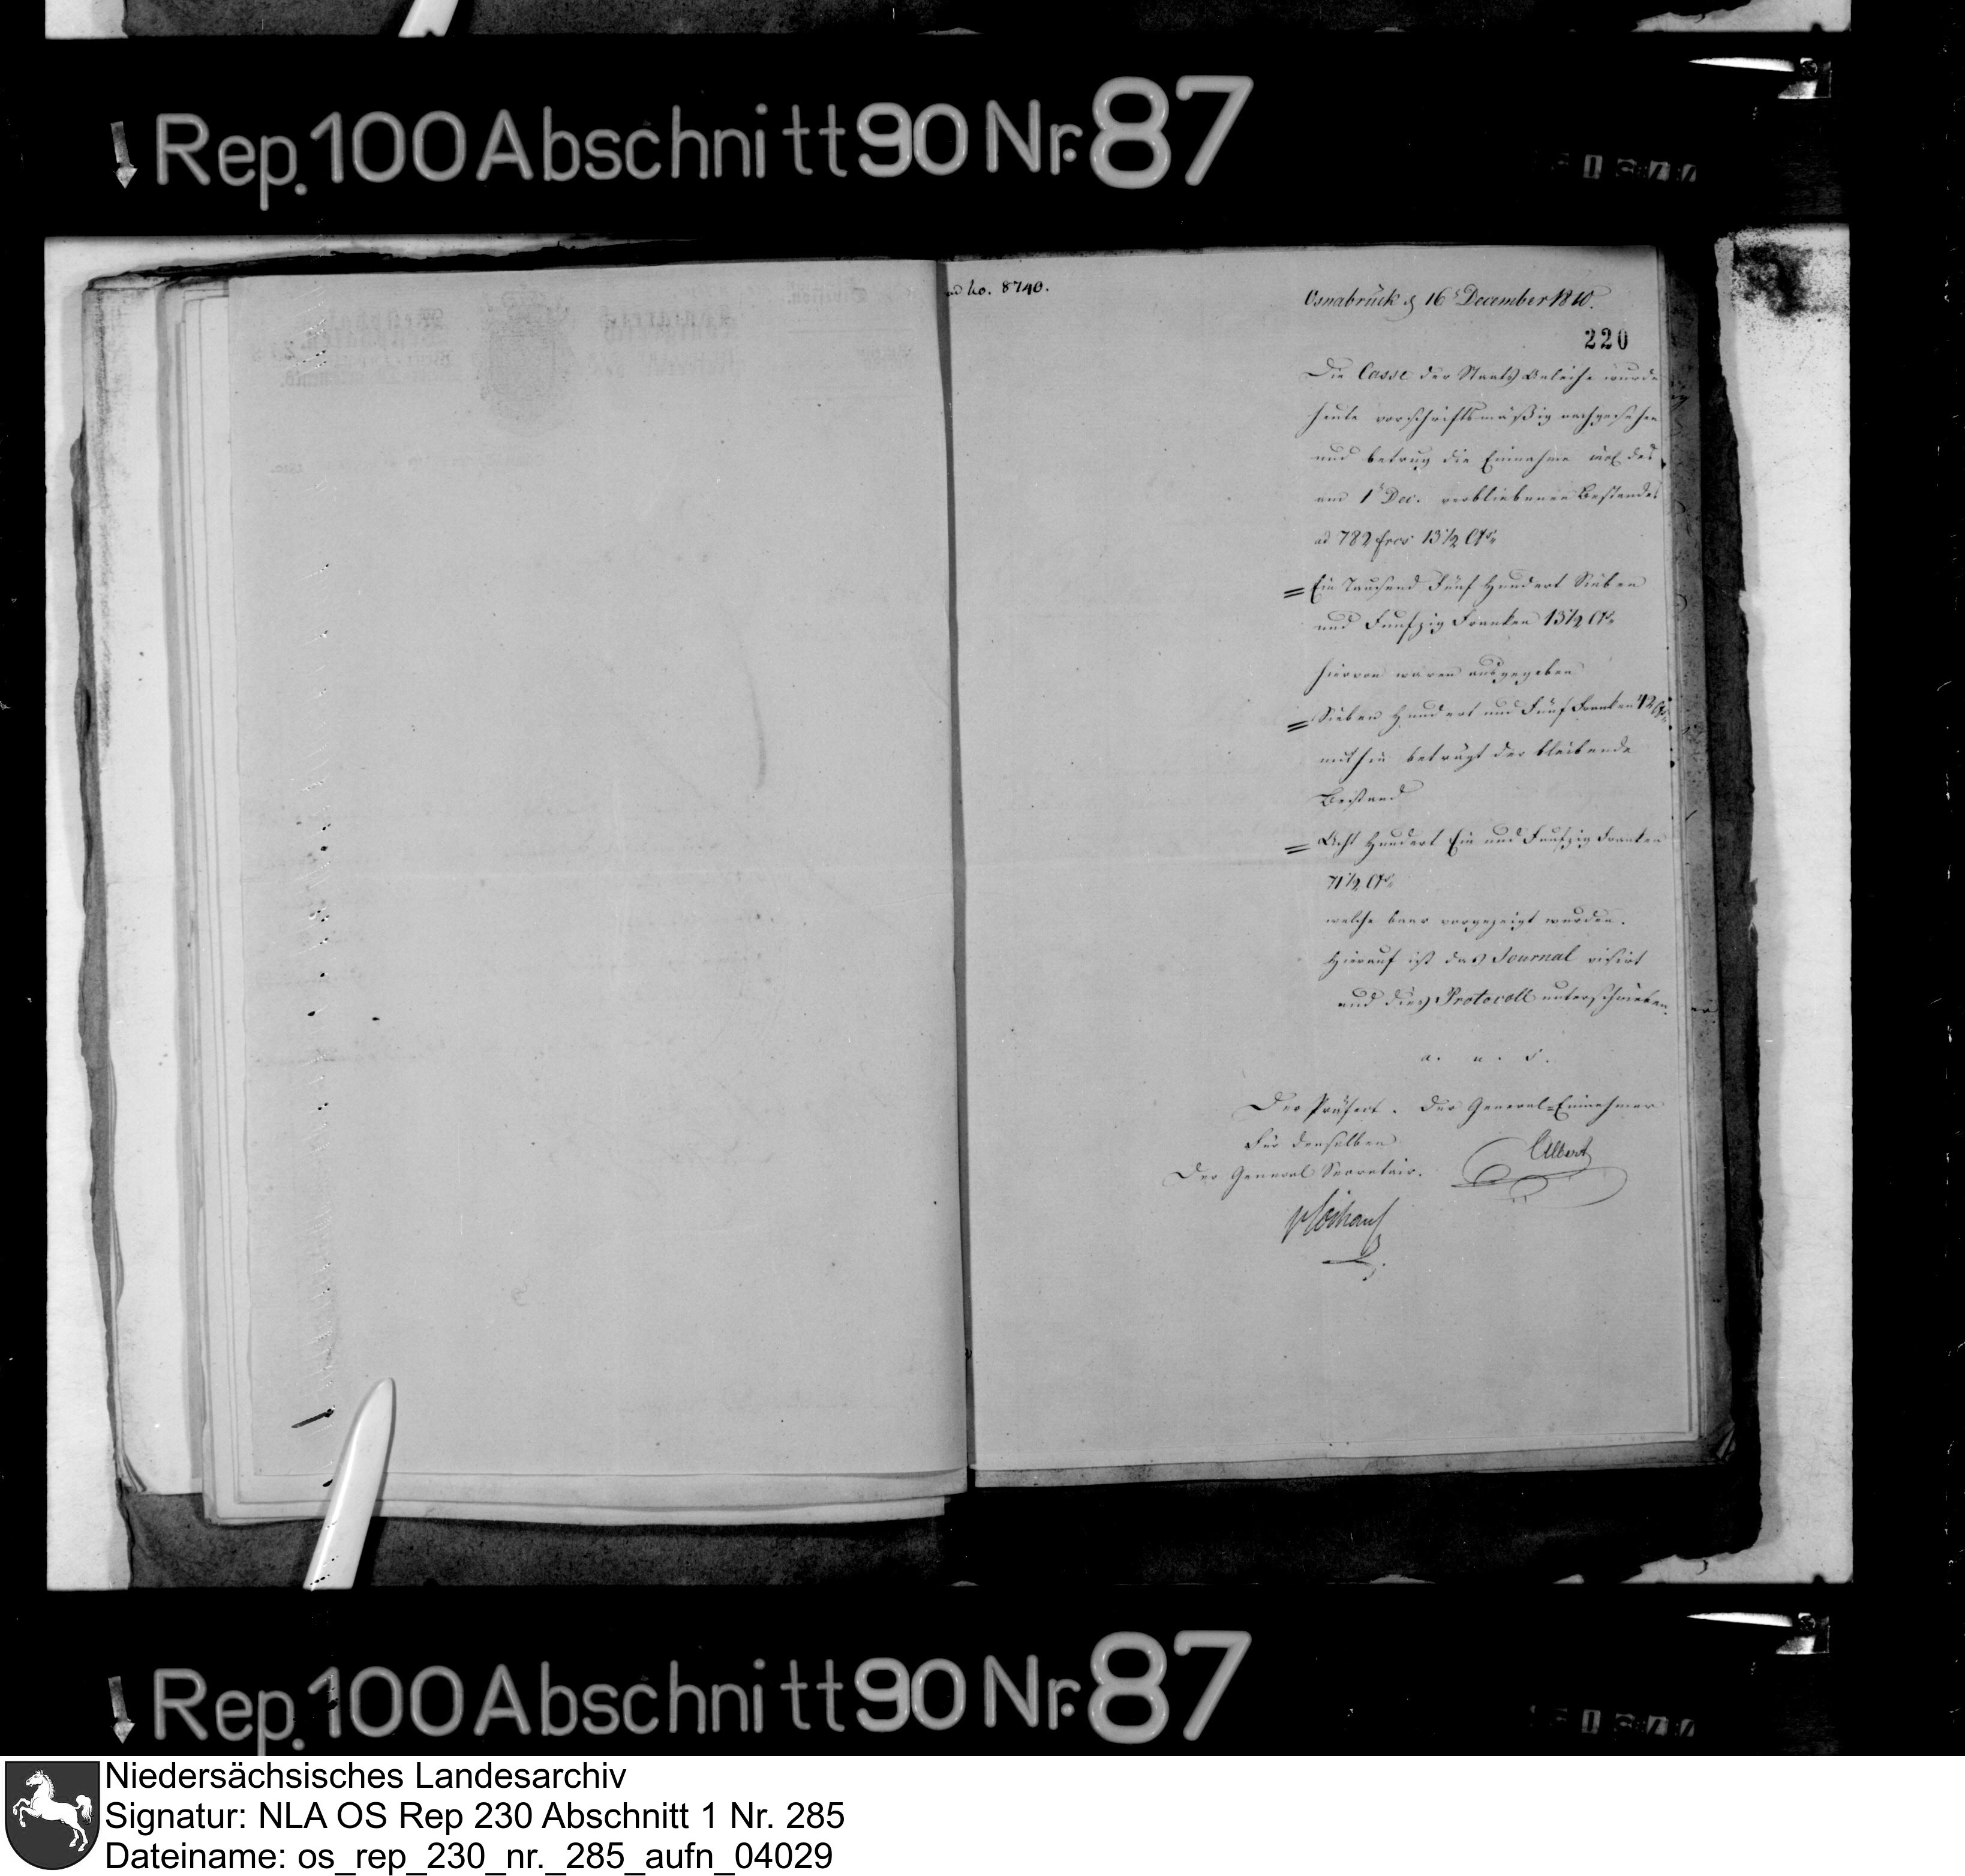 Rep. 100 Abschnitt 90 Nr. 87
ad No. 8740.
Osnabrück d 16t December 1810.
220
Die Casse der Staats Anleihe wurde
heute vorschriftsmäßig nachgesehen
und betrug die Einnahme incl des
am 1t Dec. verbliebenen Bestandes
ad 782 frcs 13½ Cts.
= Ein Tausend Fünf Hundert Sieben
und Funfzig Franken 13½ Cts.
hiervon waren ausgegeben
= Sieben Hundert und Fünf Franken 42 Cts.
mithin beträgt der bleibende
Bestand
= Acht Hundert Ein und Funfzig Franken
71½ Cts.
welche baar vorgezeigt wurden.
Hierauf ist das Journal visirt
und dies Protocoll unterschrieben.
a. u. s.
Der Präfect. Der General-Einnehmer
Für denselben
Albert
Der General Secretair.
Rep. 100 Abschnitt 90 Nr. 87
Niedersächsisches Landesarchiv
Signatur: NLA OS Rep 230 Abschnitt 1 Nr. 285
Dateiname: os_rep_230_nr._285_aufn_04029